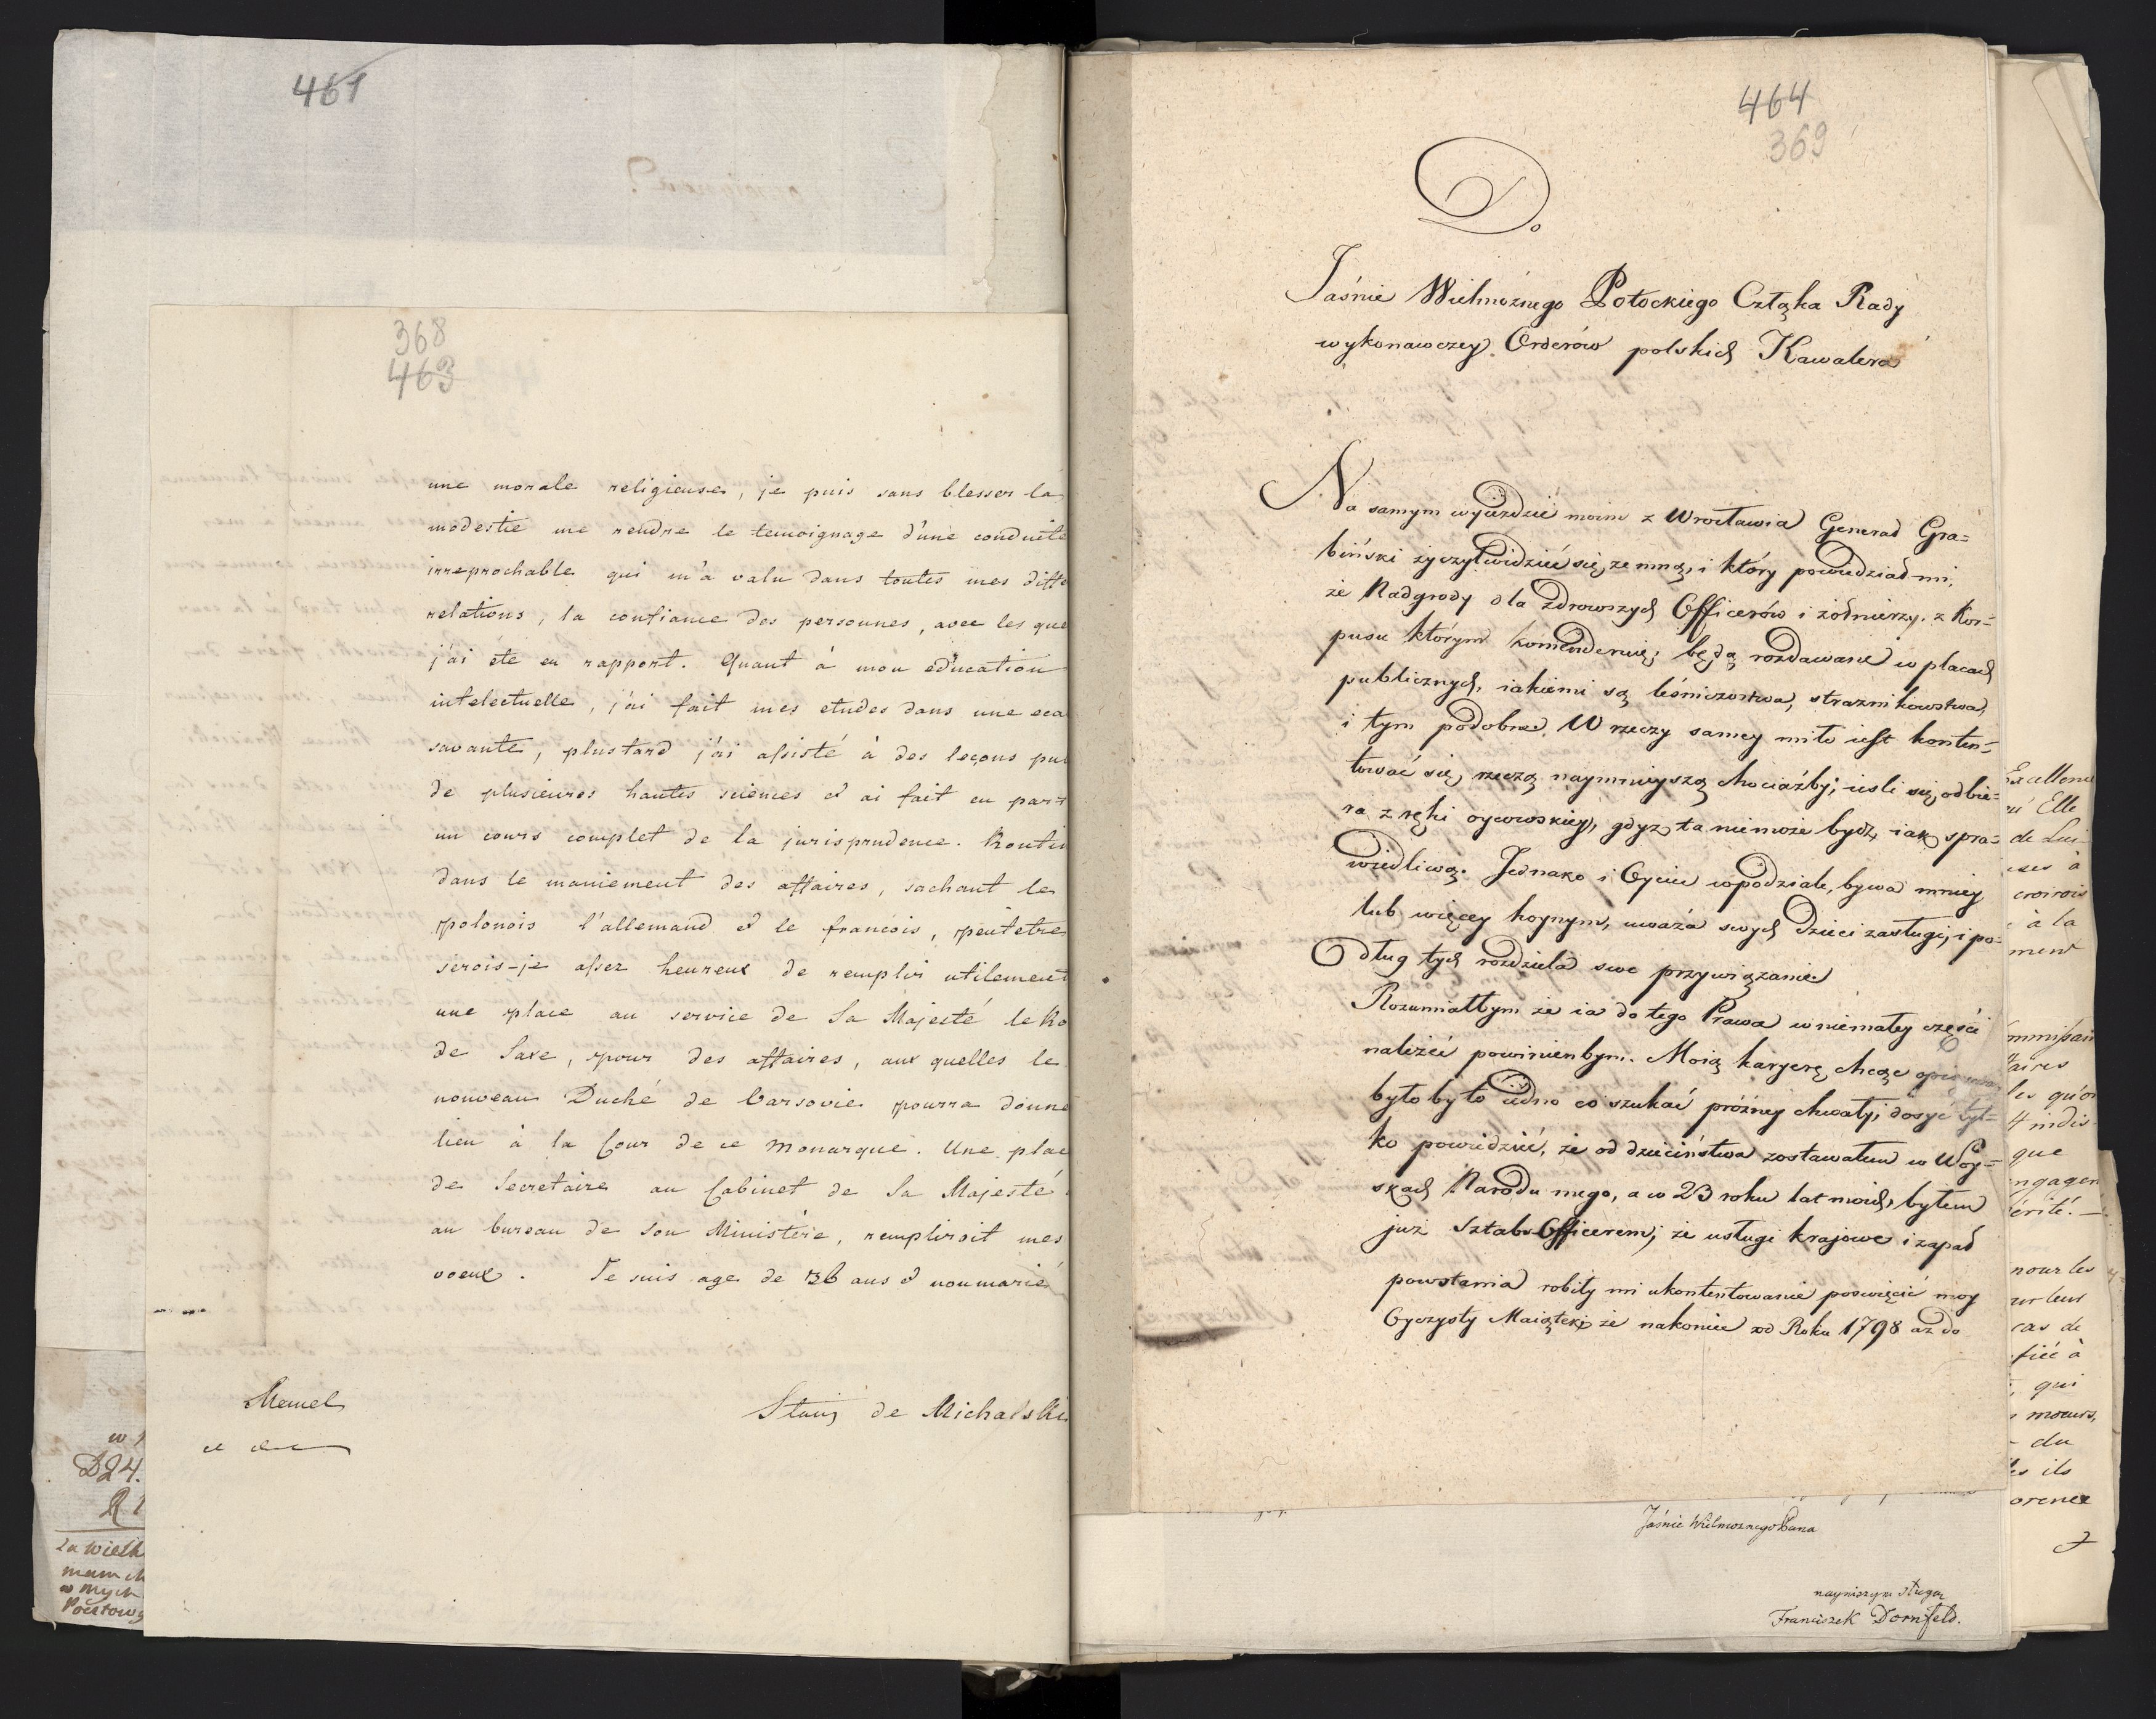 461
368
463
une morale religieuse, je puis sans blesser la
modestie me rendre le temoignage d'une conduite
irreprochable qui m'a valu dans toutes mes diffe
relations, la confiance des personnes, avec les que
j'ai éte en rapport. Quant à mon education
intelectuelle, j'ai fait mes etudes dans une aca
savante, plustard j'ai assisté à des leçons pu
de plusieures hautes sciences et ai fait en part
un cours complet de la jurisprudence. Routi
dans le maniement des affaires, sachant le
polonois l'allemand et le francois, peutetre
serois-je assez heureux de remplir utilement
une place au service de Sa Majesté le Ro
de Saxe, pour des affaires, aux quelles le
nouveau Duché de Varsovie pourra donne
lieu à la Cour de ce Monarque. Une plac
de Secretaire au Cabinet de Sa Majesté
au bureau de son Ministère, rempliroit mes
voeux. Je suis age de 36 ans et non marié
Memel
Stanis de Michalski
w
D24.
R 1
za wielk
mam
w mych
Pocztow
464
369
Do
Jaśnie Wielmożnego Potockiego Członka Rady
wykonawczey Orderów polskich Kawalera
Na samym wyiezdzie moim z Wrocławia Generał Gra=
biński życzył widzieć się ze mną, i który powiedział mi,
że Nadgrody dla zdrowszych Officerów i żołnierzy z Kor=
pusu którym komenderuie, będą rozdawane w placach
publicznych, iakiemi są leśniczostwa, strażnikowstwa,
i tym podobne. W rzeczy samey miło iest konten=
tować się, rzeczą naymnieyszą chociażby, iesli się odbie=
ra z ręki oycowskiey, gdyż ta niemoże bydz, iak spra=
wiedliwą. Jednako i Oyciec w podziale, bywa mniey
lub więcey hoynym, uważa swych dzieci zasługi, i po=
dług tych rozdziela swe przywiązanie
Rozumiałbym że ia do tego Prawa w niemałey części
należeć powinienbym. Moią karyerę chcąc
było by to iedno co szukać próżney chwały, dosyć tyl=
ko powiedzieć, że od dzieciństwa zostawałem w Woy=
skach Narodu mego, a w 23 roku lat moich, byłem
już Sztabs-Officerem, że usługi krajowe i zapał
powstania robiły mi ukontentowanie poświęcić moy
Oyczysty Maiątek, że nakoniec od Roku 1798 aż do
Jaśnie Wielmożnego Pana
nayniższym sługą
Franciszek Dornfeld.
Excellenc
Elle
de Lui
à
croirois
à la
ment
ommissair
aires
les qu'on
indis
que
ngagen
érité. —
pour les
ur leur
cas de
fiée à
qui
moeurs,
du
les ils